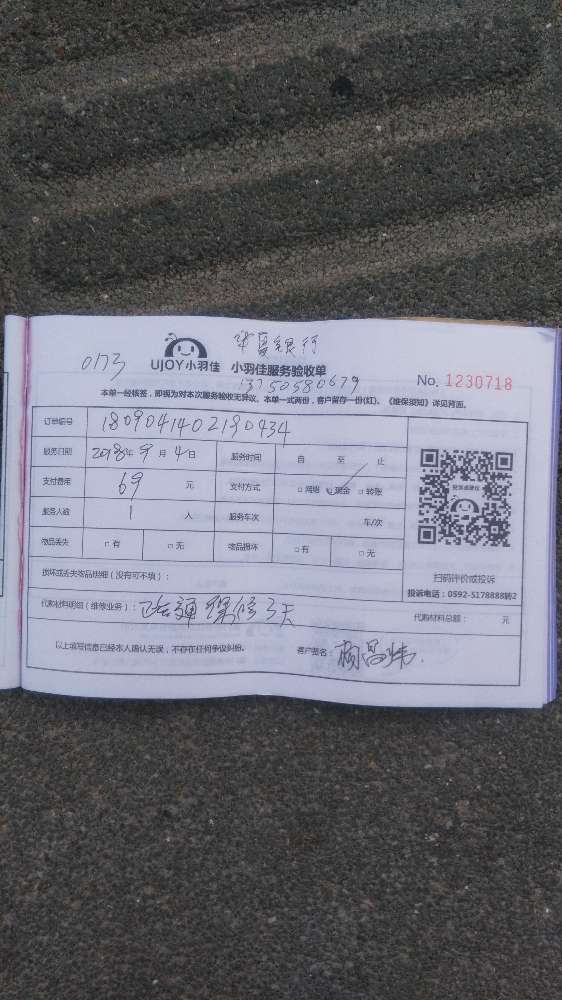 华夏银行
0173
UJOY小羽佳 小羽佳服务验收单
13750580679
No. 1230718
本单一经核签，即视为对本次服务验收无异议。本单一式两份，客户留存一份(红)。《维保须知》详见背面。
订单编号 1809041402190434
服务日期 2018年 9 月 4 日 服务时间 自 至 止
支付费用 69 元 支付方式 □ 网络 □ 现金 □ 转账
服务人数 1 人 服务车次 车/次
物品丢失 □ 有 □ 无 物品损坏 □ 有 □ 无
扫码评价或投诉
投诉电话：0592-5178888转2
损坏或丢失物品明细（没有可不填）：
代购材料明细（维修业务）： 已疏通 保修3天 代购材料总额： 元
以上填写信息已经本人确认无误，不存在任何争议纠纷。 客户签名：